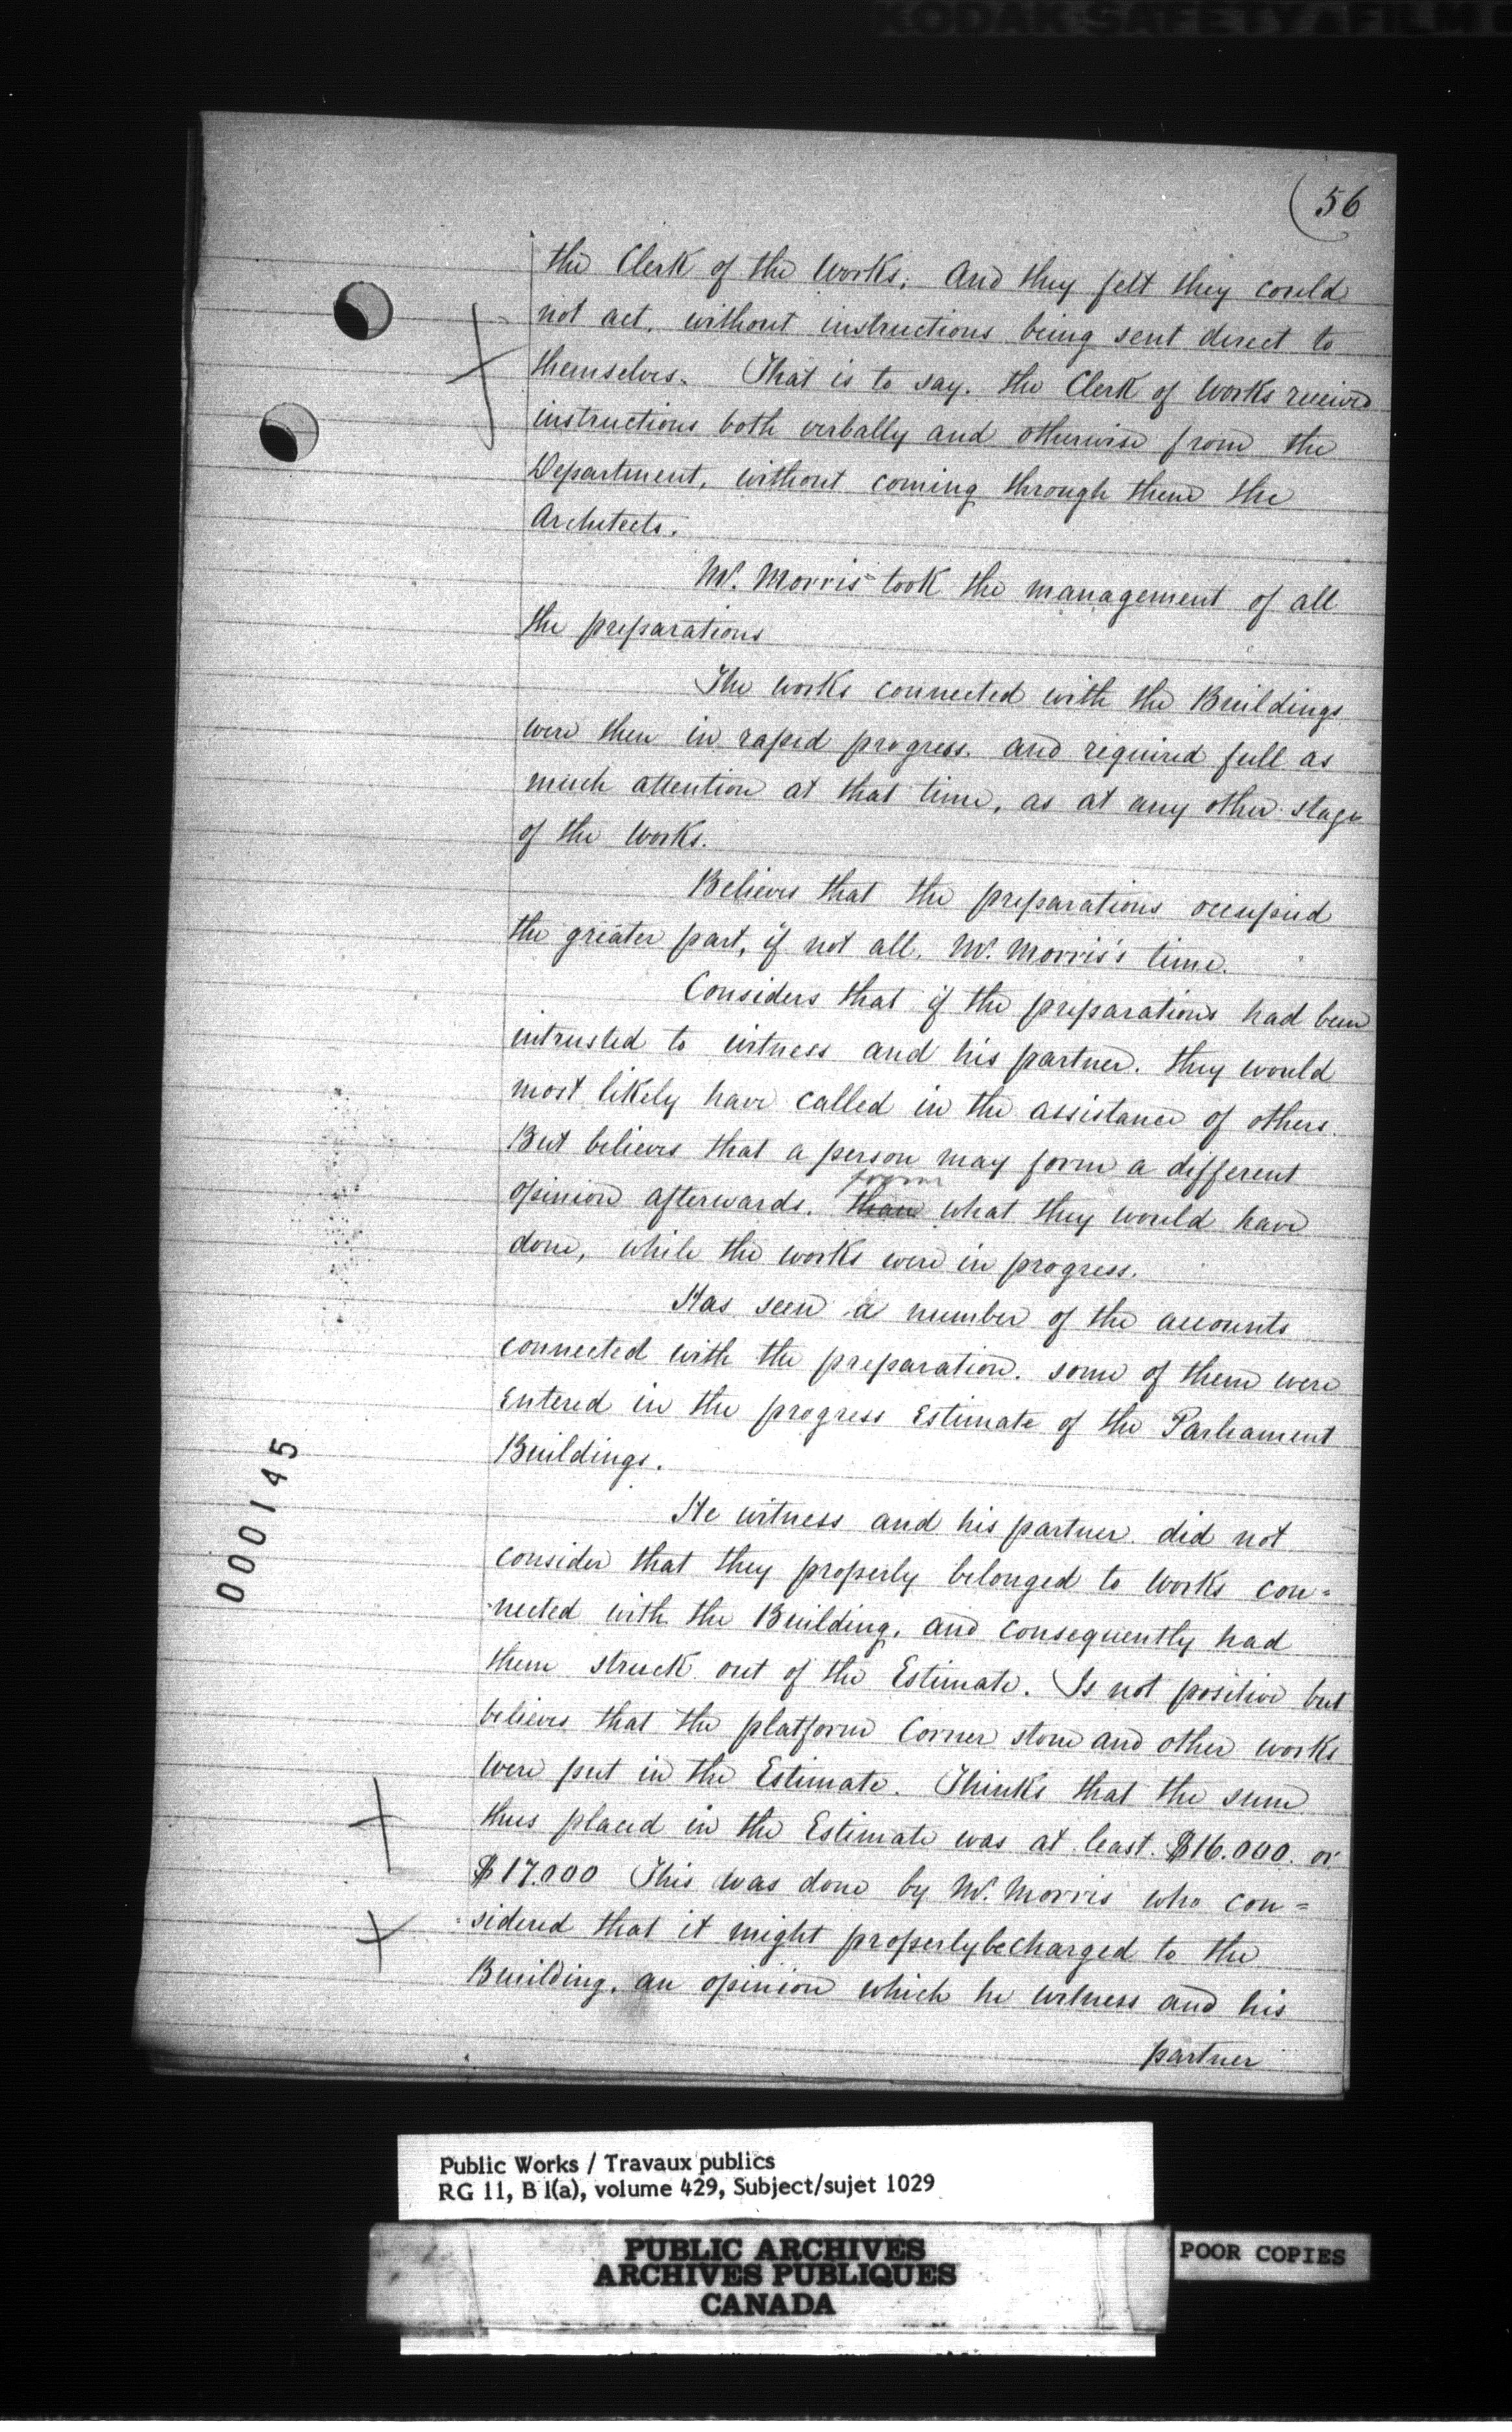 KODAK SAFETY FILM
(56
the Clerk of the Works; And they felt they could
not act, without instructions being sent direct to
themselves. That is to say, the Clerk of Works received
instructions both verbally and otherwise from the
Department, without coming through them the
Architects.
Mr. Morris took the management of all
the preparations
The works connected with the Buildings
were then in rapid progress. and required full as
much attention at that time, as at any other stage
of the Works.
Believes that the preparations occupied
the greater part, if not all, Mr. Morris's time.
Considers that if the preparations had been
intrusted to witness and his partner. they would
most likely have called in the assistance of others.
But believes that a person may form a different
from
opinion afterwards. than what they would have
done, while the works were in progress.
Has seen a number of the accounts
connected with the preparation. some of them were
entered in the progress Estimate of the Parliament
Buildings.
He witness and his partner did not
consider that they properly belonged to Works con=
nected with the Building, and consequently had
them struck out of the Estimate. Is not positive but
believes that the platform Corner stone and other works
were put in the Estimate. Thinks that the sum
thus placed in the Estimate was at least $16.000. or
$17.000 This was done by Mr. Morris who con=
=sidered that it might properly be charged to the
Building, an opinion which he witness and his
partner
000145
Public Works / Travaux publics
RG 11, B 1(a), volume 429, Subject/sujet 1029
PUBLIC ARCHIVES
ARCHIVES PUBLIQUES
CANADA
POOR COPIES